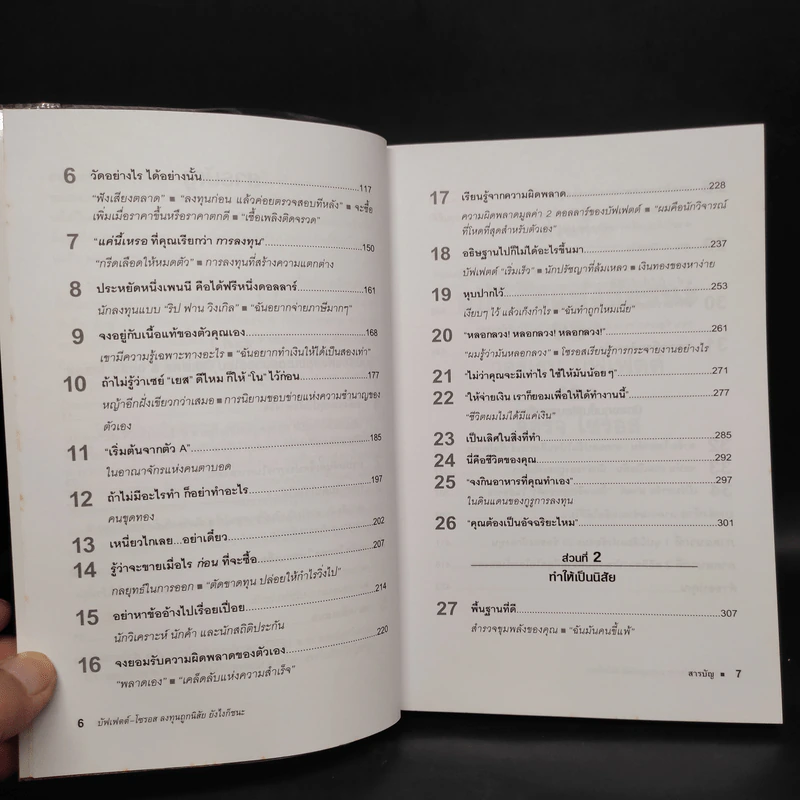 6 วัดอย่างไร ได้อย่างนั้น 117
"ฟังเสียงตลาด" ■ "ลงทุนก่อน แล้วค่อยตรวจสอบทีหลัง" ■ จะซื้อ
เพิ่มเมื่อราคาขึ้นหรือราคาตกดี ■ "เชื้อเพลิงติดจรวด"
7 "แค่นี้เหรอ ที่คุณเรียกว่า การลงทุน" 150
"กรีดเลือดให้หมดตัว" ■ การลงทุนที่สร้างความแตกต่าง
8 ประหยัดหนึ่งเพนนี คือได้ฟรีหนึ่งดอลลาร์ 161
นักลงทุนแบบ "ริป ฟาน วิงเกิล" ■ "ฉันอยากจ่ายภาษีมากๆ"
9 จงอยู่กับเนื้อแท้ของตัวคุณเอง 168
เขามีความรู้เฉพาะทางอะไร ■ "ฉันอยากทำเงินให้ได้เป็นสองเท่า"
10 ถ้าไม่รู้ว่าเซย์ "เยส" ดีไหม ก็ให้ "โน" ไว้ก่อน 177
หญ้าอีกฝั่งเขียวกว่าเสมอ ■ การนิยามขอบข่ายแห่งความชำนาญของ
ตัวเอง
11 "เริ่มต้นจากตัว A" 185
ในอาณาจักรแห่งคนตาบอด
12 ถ้าไม่มีอะไรทำ ก็อย่าทำอะไร 197
คนขุดทอง
13 เหนี่ยวไกเลย...อย่าเดี๋ยว 202
14 รู้ว่าจะขายเมื่อไร ก่อน ที่จะซื้อ 207
กลยุทธ์ในการออก ■ "ตัดขาดทุน ปล่อยให้กำไรวิ่งไป"
15 อย่าหาข้ออ้างไปเรื่อยเปื่อย 214
นักวิเคราะห์ นักค้า และนักสถิติประกัน
16 จงยอมรับความผิดพลาดของตัวเอง 220
"พลาดเอง" ■ "เคล็ดลับแห่งความสำเร็จ"
6 บัฟเฟตต์-โซรอส ลงทุนถูกนิสัย ยังไงก็ชนะ
17 เรียนรู้จากความผิดพลาด 228
ความผิดพลาดมูลค่า 2 ดอลลาร์ของบัฟเฟตต์ ■ "ผมคือนักวิจารณ์
ที่โหดที่สุดสำหรับตัวเอง"
18 อธิษฐานไปก็ไม่ได้อะไรขึ้นมา 237
บัฟเฟตต์ "เริ่มเร็ว" ■ นักปรัชญาที่ล้มเหลว ■ เงินทองของหาง่าย
19 หุบปากไว้ 253
เงียบๆ ไว้ แล้วเก็งกำไร ■ "ฉันทำถูกไหมเนี่ย"
20 "หลอกลวง! หลอกลวง! หลอกลวง!" 261
"ผมรู้ว่ามันหลอกลวง" ■ โซรอสเรียนรู้การกระจายงานอย่างไร
21 "ไม่ว่าคุณจะมีเท่าไร ใช้ให้มันน้อยๆ" 271
22 "ให้จ่ายเงิน เราก็ยอมเพื่อให้ได้ทำงานนี้" 277
"ชีวิตผมไม่ได้มีแค่เงิน"
23 เป็นเลิศในสิ่งที่ทำ 285
24 นี่คือชีวิตของคุณ 292
25 "จงกินอาหารที่คุณทำเอง" 297
ในดินแดนของกูรูการลงทุน
26 "คุณต้องเป็นอัจฉริยะไหม" 301
ส่วนที่ 2
ทำให้เป็นนิสัย
27 พื้นฐานที่ดี 307
สำรวจขุมพลังของคุณ ■ "ฉันมันคนขี้แพ้"
สารบัญ ■ 7